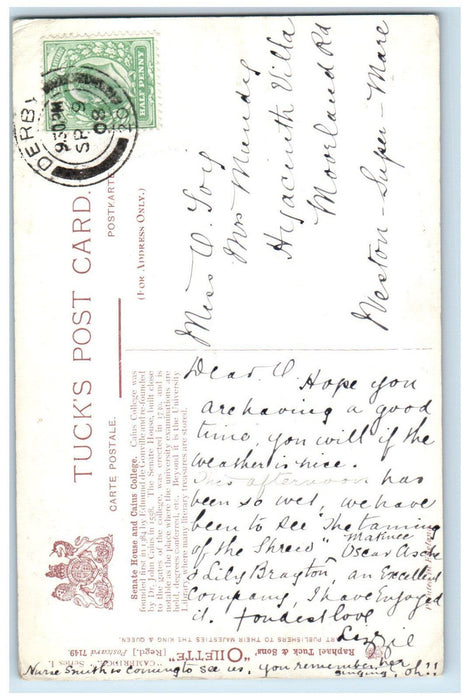 TUCK'S POST CARD.
CARTE POSTALE.
POSTKARTE
(FOR ADDRESS ONLY.)
HALF PENNY
DERBY
9.30 PM
SP 9
08
Miss O.
Mrs Mundy
Hyacinth Villa
Moorland Rd
Weston-Super-Mare
Senate House and Caius College. Caius College was
founded first in 1347 by Edmund de Gonville and re-founded
by Dr. John Caius in 1558. The Senate House, built close
to the gates of the college, was erected in 1730, and is
notable as the place where the university examinations are
held, degrees conferred, etc. Beyond it is the University
Library, where many literary treasures are stored.
Dear O. Hope you
are having a good
time, you will if the
weather is nice.
This afternoon has
been so wet, we have
been to see "The taming
of the Shrew" Matinee Oscar Asche
& Lily Brayton, an Excellent
Company, I have Enjoyed
it. fondest love
Lizzie
Nurse Smith is coming to see us, you remember her
singing, oh!!
"CAMBRIDGE," Series I.
"OILETTE" [Regd.] Postcard 7149.
Raphael Tuck & Sons'
ART PUBLISHERS TO THEIR MAJESTIES THE KING & QUEEN.